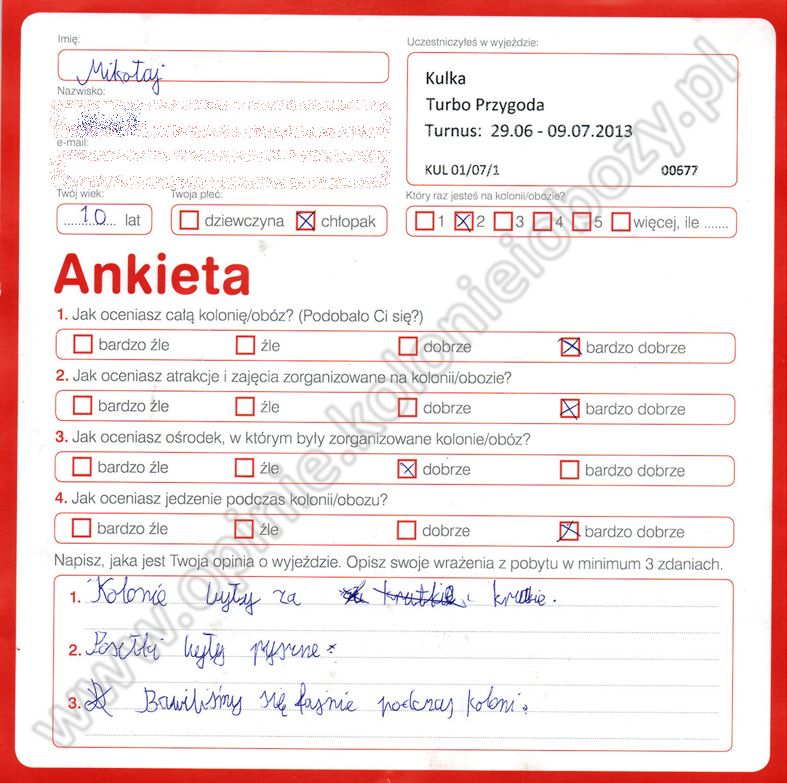 Imię:
Uczestniczyłeś w wyjeździe:
Mikołaj
Kulka
Nazwisko:
Turbo Przygoda
Turnus: 29.06 - 09.07.2013
e-mail:
KUL 01/07/1 00677
Twój wiek: Twoja płeć: Który raz jesteś na kolonii/obozie?
10 lat dziewczyna chłopak 1 2 3 4 5 więcej, ile .......
Ankieta
1. Jak oceniasz całą kolonię/obóz? (Podobało Ci się?)
bardzo źle źle dobrze bardzo dobrze
2. Jak oceniasz atrakcje i zajęcia zorganizowane na kolonii/obozie?
bardzo źle źle dobrze bardzo dobrze
3. Jak oceniasz ośrodek, w którym były zorganizowane kolonie/obóz?
bardzo źle źle dobrze bardzo dobrze
4. Jak oceniasz jedzenie podczas kolonii/obozu?
bardzo źle źle dobrze bardzo dobrze
Napisz, jaka jest Twoja opinia o wyjeździe. Opisz swoje wrażenia z pobytu w minimum 3 zdaniach.
1. Kolonie były za
2. były pyszne.
3. Bawiliśmy się fajnie podczas koloni.
www.opinie.kolonieiobozy.pl